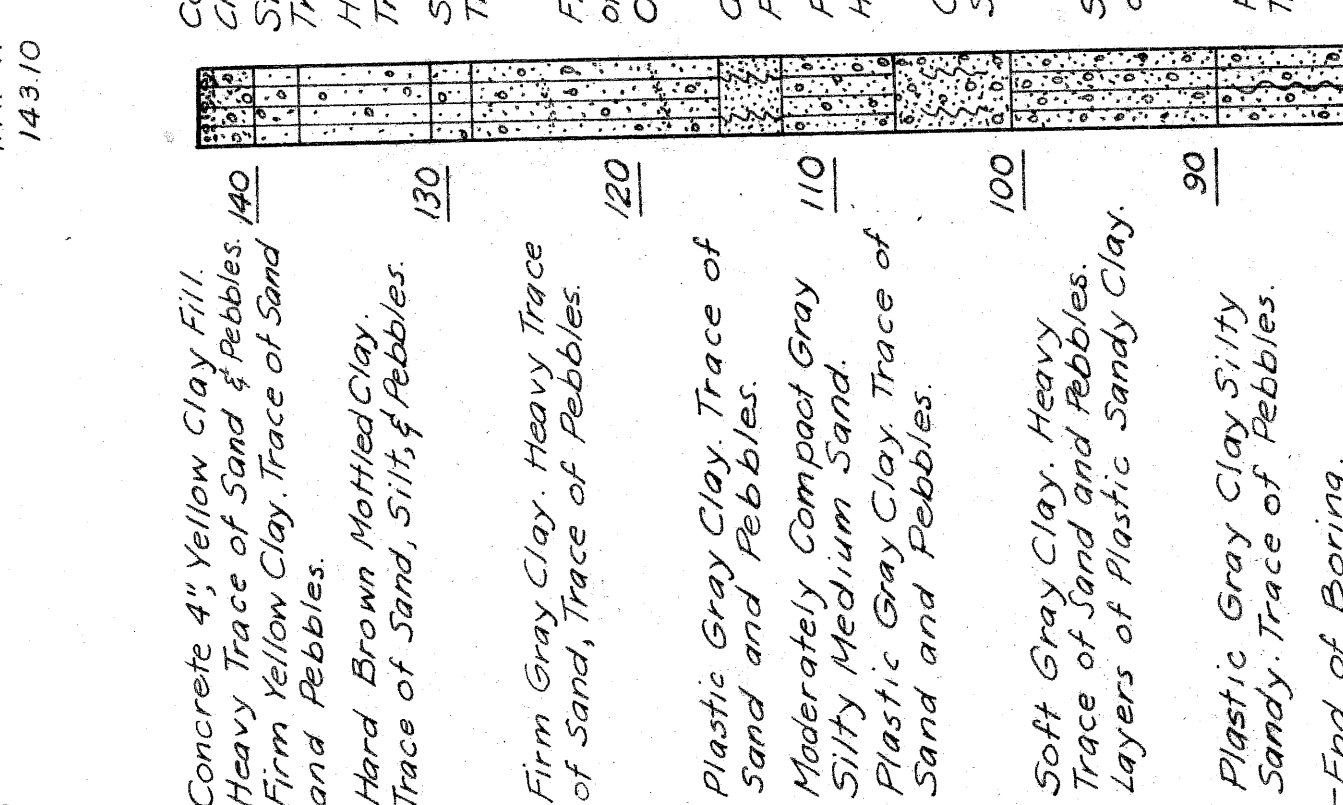 143.10
140
130
120
110
100
90
Concrete 4", Yellow Clay Fill.
Heavy Trace of Sand & Pebbles.
Firm Yellow Clay. Trace of Sand
and Pebbles.
Hard Brown Mottled Clay.
Trace of Sand, Silt, & Pebbles.
Firm Gray Clay. Heavy Trace
of Sand, Trace of Pebbles.
Plastic Gray Clay. Trace of
Sand and Pebbles.
Moderately Compact Gray
Silty Medium Sand.
Plastic Gray Clay. Trace of
Sand and Pebbles.
Soft Gray Clay. Heavy
Trace of Sand and Pebbles.
Layers of Plastic Sandy Clay.
Plastic Gray Clay Silty
Sandy. Trace of Pebbles.
End of Boring.